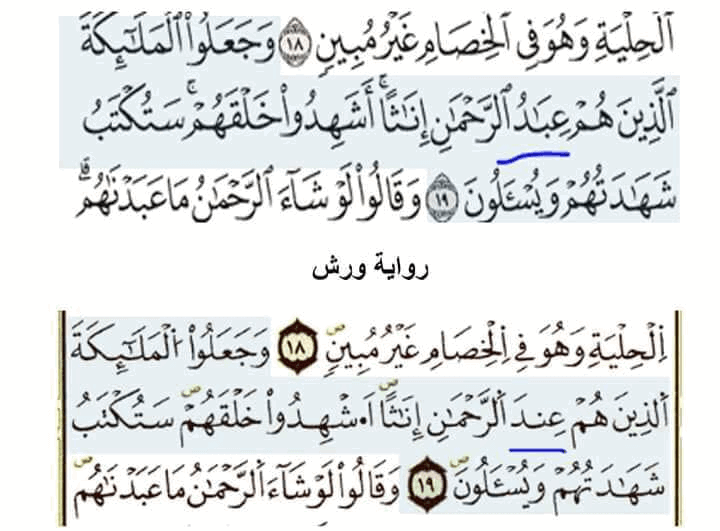 ٱلۡحِلۡيَةِ وَهُوَ فِي ٱلۡخِصَامِ غَيۡرُ مُبِينٖ ١٨ وَجَعَلُواْ ٱلۡمَلَٰٓئِكَةَ
ٱلَّذِينَ هُمۡ عِبَٰدُ ٱلرَّحۡمَٰنِ إِنَٰثًاۚ أَشَهِدُواْ خَلۡقَهُمۡۚ سَتُكۡتَبُ
شَهَٰدَتُهُمۡ وَيُسۡـَٔلُونَ ١٩ وَقَالُواْ لَوۡ شَآءَ ٱلرَّحۡمَٰنُ مَا عَبَدۡنَٰهُمۗ
رواية ورش
اِ۬لۡحِلۡيَةِ وَهُوَ فِي اِ۬لۡخِصَامِ غَيۡرُ مُبِينٖۖ ١٨ وَجَعَلُواْ اُ۬لۡمَلَٰٓئِكَةَ
اَ۬لذِينَ هُمۡ عِندَ اَ۬لرَّحۡمَٰنِ إِنَٰثاًۖ اَ۟شۡهِدُواْ خَلۡقَهُمۡۖ سَتُكۡتَبُ
شَهَٰدَتُهُمۡ وَيُسۡـَٔلُونَۖ ١٩ وَقَالُواْ لَوۡ شَآءَ اَ۬لرَّحۡمَٰنُ مَا عَبَدۡنَٰهُمۖ